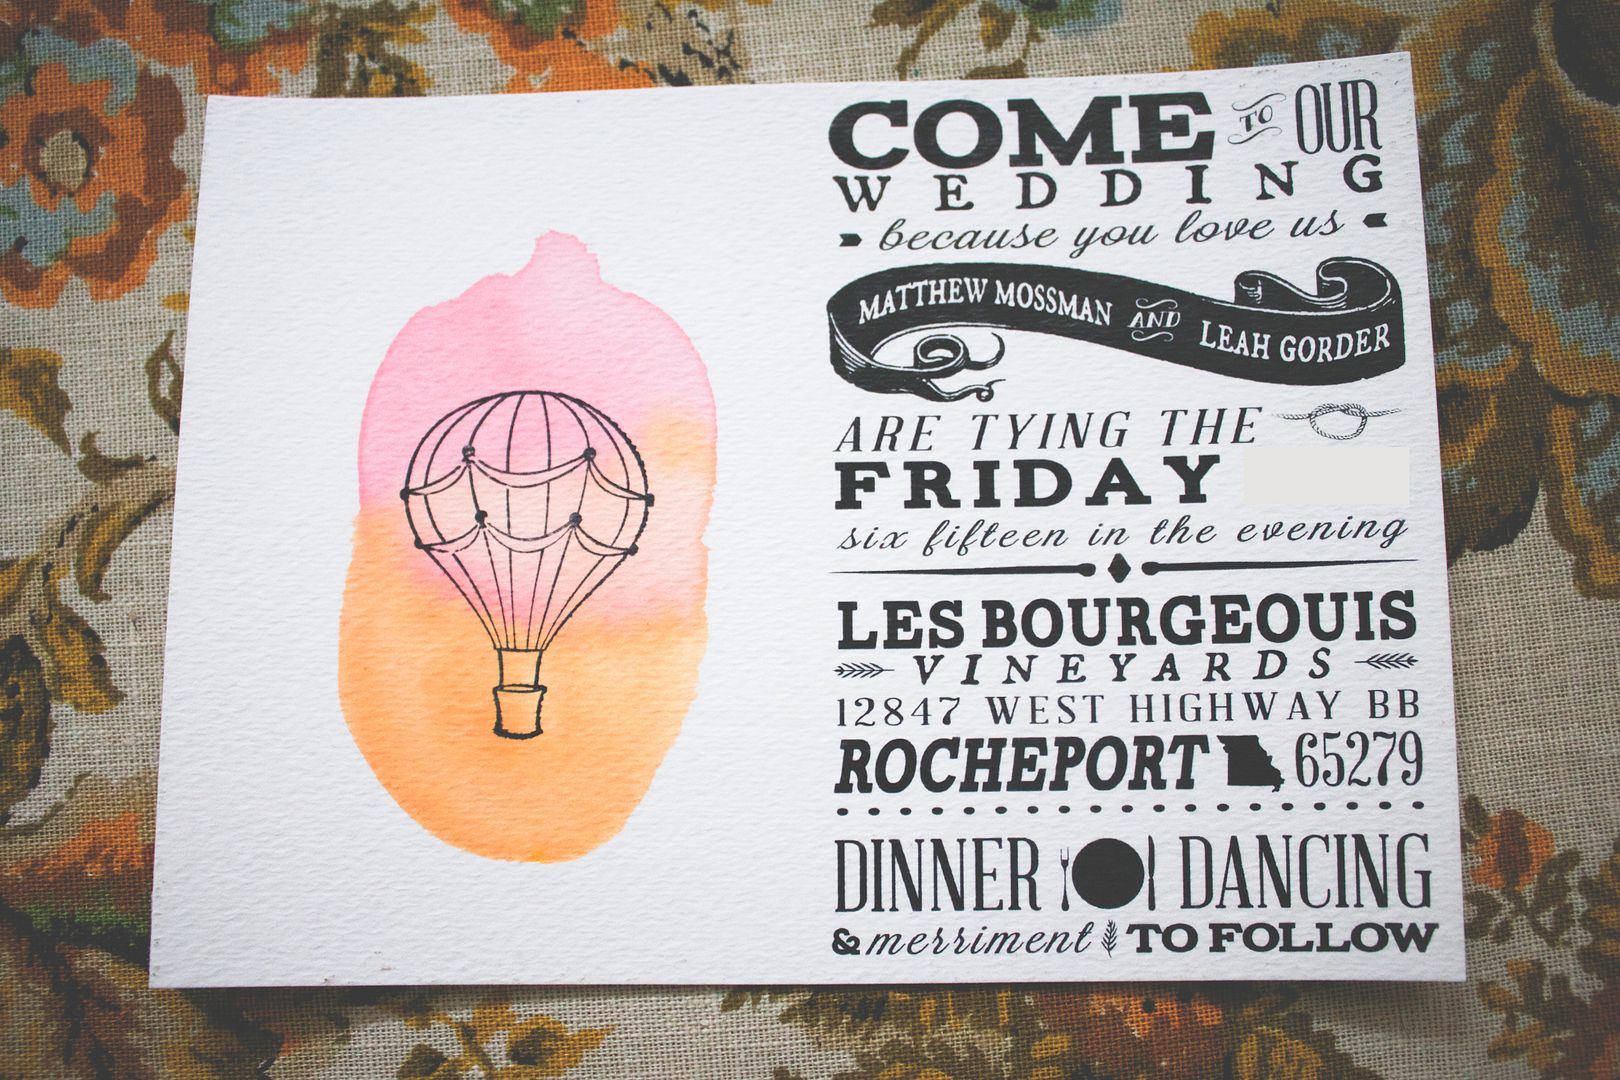 COME TO OUR
WEDDING
because you love us
MATTHEW MOSSMAN AND LEAH GORDER
ARE TYING THE
FRIDAY
six fifteen in the evening
LES BOURGEOUIS
VINEYARDS
12847 WEST HIGHWAY BB
ROCHEPORT 65279
DINNER DANCING
& merriment TO FOLLOW